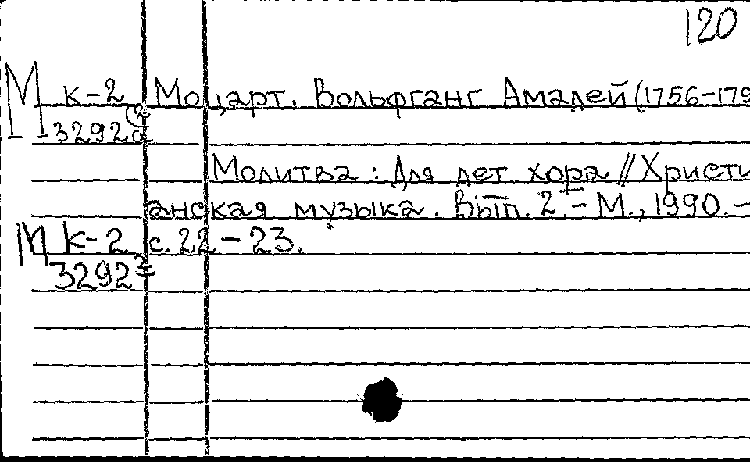 120
М к-2 Моцарт. Вольфганг Амадей (1756-179
3292
Молитва : Для дет. хора // Христи
анская музыка. Вып. 2. - М., 1990. -
М к-2 с. 22 - 23.
3292